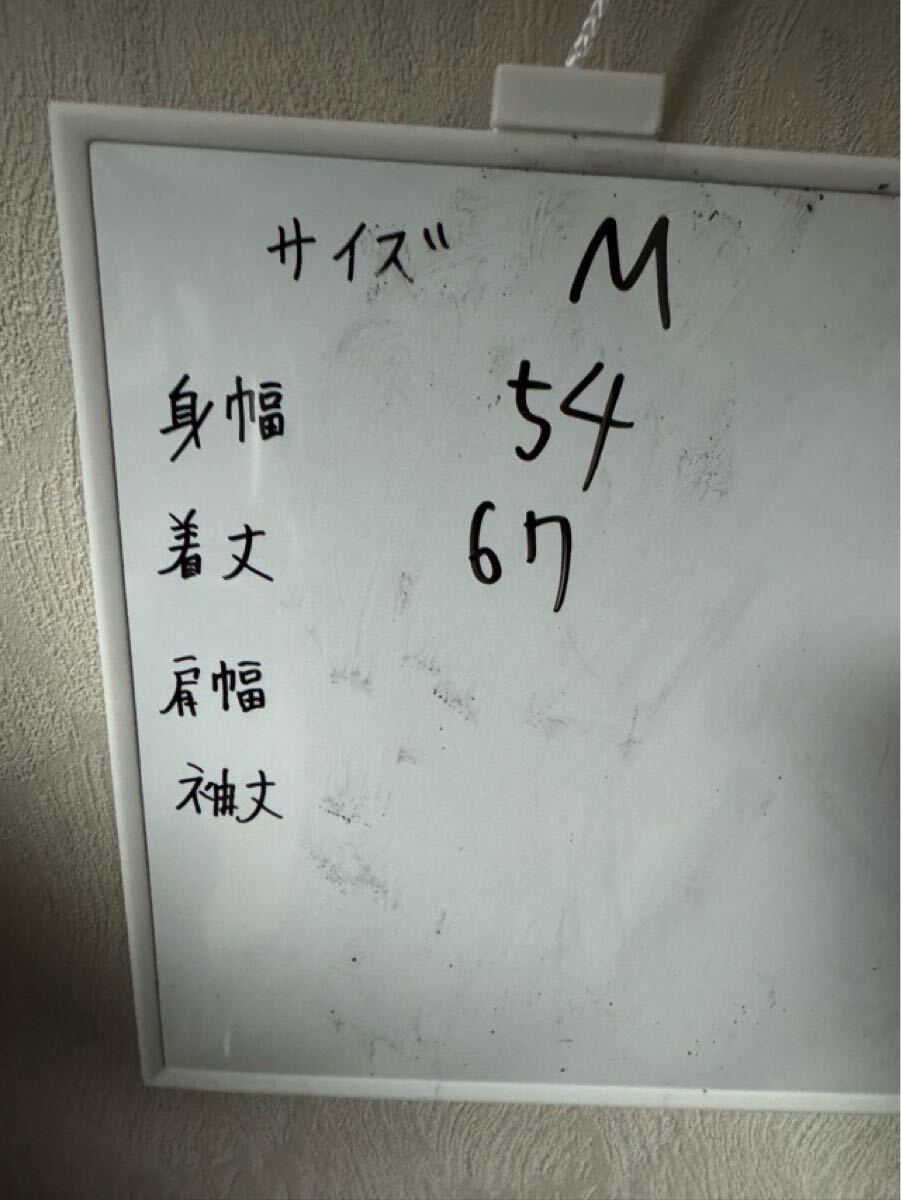 サイズ M
身幅 54
着丈 67
肩幅
袖丈